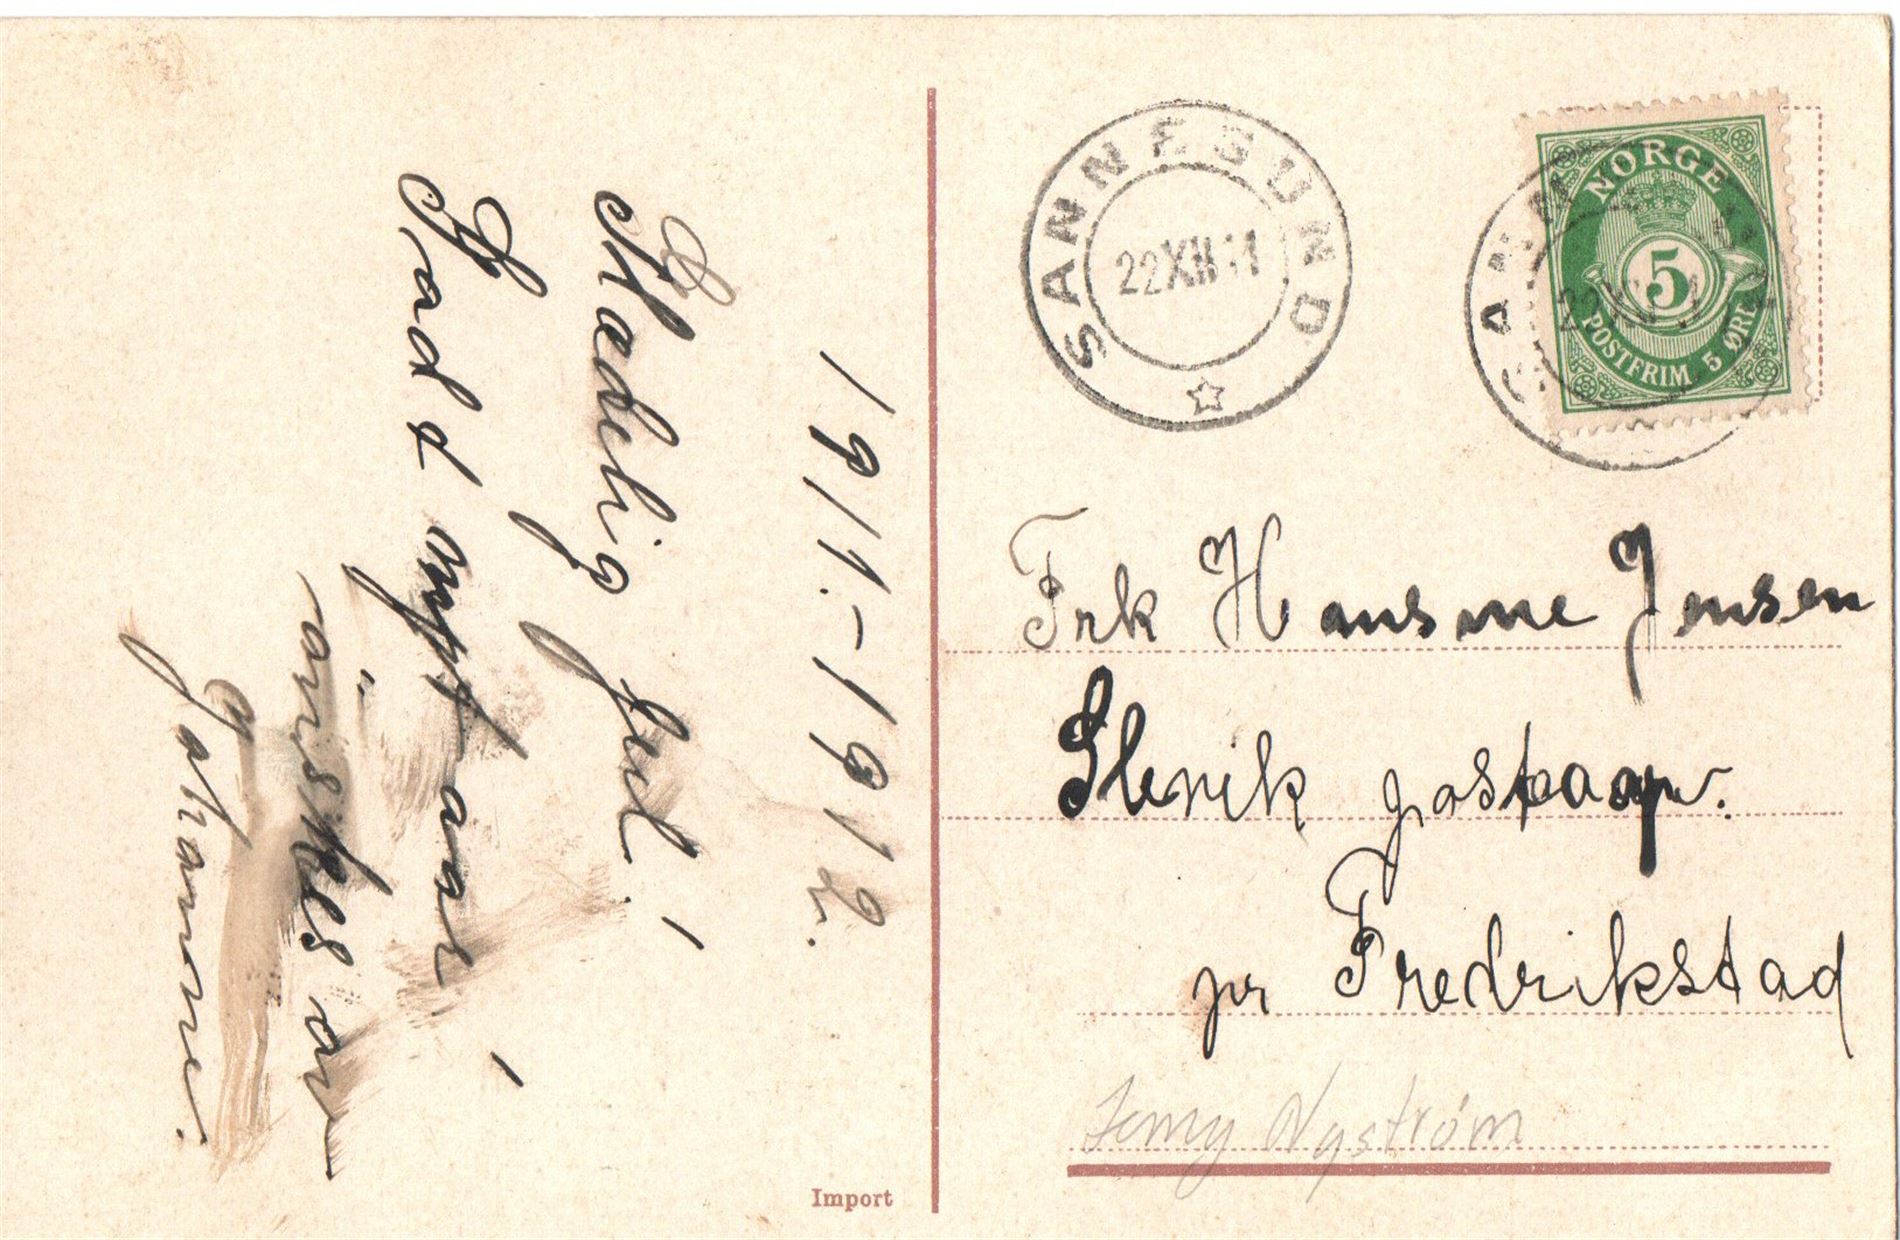 1911.-1912.
Glædelig Jul!
Godt nytt aar!
önskes av
Johanne.
Import
SANNESUND
22 XII 11
NORGE
5
POSTFRIM. 5 ØRE
Frk Hansine Jensen
Slevik postaapn.
pr Fredrikstad
Jenny Nystrøm